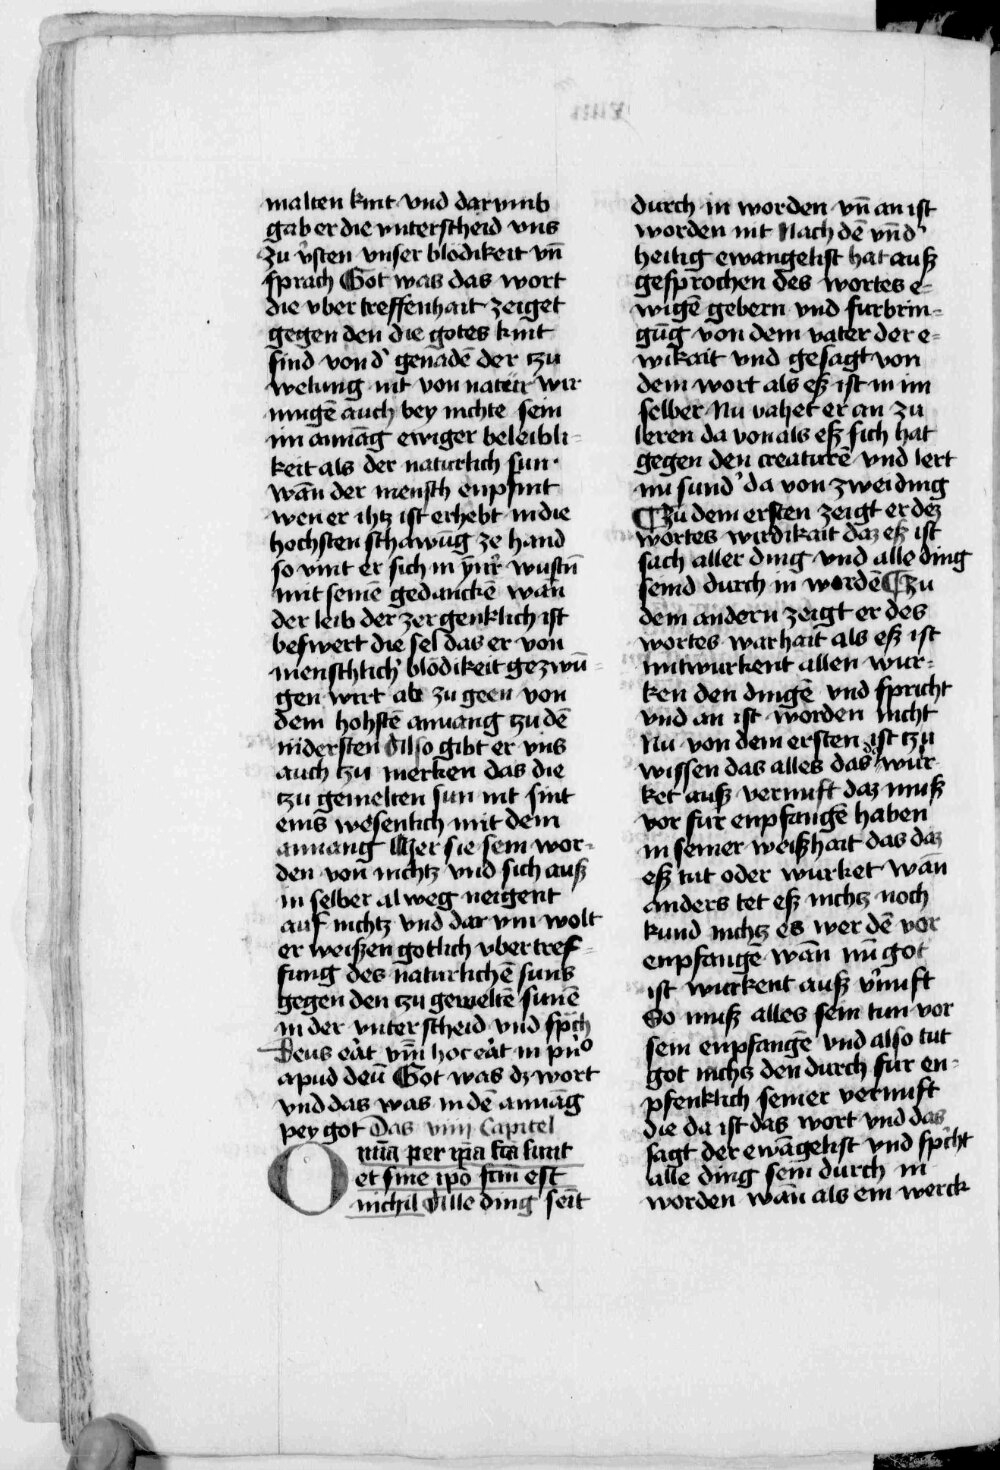 malten kint vnd darvmb
gab er die vnterscheid vns
zu v̉sten vnser blodikeit vn̄
sprach Got was das wort
die vber treffenhait zeiget
gegen den die gotes kint
sind von d̉ genadē der tzu
welung nit von natür wir
mugē auch bey nichte sein
im anuāg ewiger beleibli-
keit als der naturlich sun·
wān der mensch enpfint
wen er ihtz ist erhebt in die
hochsten schawūg ze hand
so vint er sich in ynr̉ wustn̄
mit seinē gedanckē wān
der leib der zer genklich ist
beswert die sel das er von
menschlich̉ blödikeit gezwū-
gen wirt abe zu geen von
dem hohstē anuang tzu dē
nidersten Also gibt er vns
auch tzu merken das die
tzu gemelten sun nit sint
eins wesenlich mit dem
anuang Wer sie sein wor-
den von nichtz vnd sich auß
in selber alweg neigent
auf nichtz vnd dar vm wolt
er weißen gotlich vbertref-
fung des naturlichē suns
gegen den tzu geweltē sunē
in der vnterscheid vnd spch̄
Deus eāt v̄m hoc eāt in pn̉o
apud deū Got was dz wort
vnd das was in dē anuāg
pey got Das viiij Capitel
Omīa per ip̄a fcā sunt
et sine ip̄o fcm̄ est
nichil Alle ding seīt
durch in worden vn̄ an ist
worden nit Nach dē vn̄d̉
heilig ewangelist hat auß
gesprochen des wortes e-
wigē gebern vnd furbrin-
gūg von dem vater der e-
wikait vnd gesagt von
dem wort als eß ist in im
selber Nu vahet er an zu
leren da von als eß sich hat
gegen den creaturē vnd lert
nu sund̉ da von zwei ding
¶ Zu dem ersten zeigt er dez
wortes wirdikait daz eß ist
sach aller ding vnd alle ding
seind durch in wordē ¶ Zu
dem andern zeigt er des
wortes warhait als eß ist
mitwurkent allen wur-
ken den dingē vnd spricht
vnd an ist worden nicht
Nu von dem ersten ist tzu
wissen das alles das da wur
ket auß vernuft daz muß
vor fur enpfangē haben
in seiner weißhait das daz
eß tut oder wurket wān
anders tet eß nichtz noch
kund nichtz es werdē vor
enpfangē wān nū got
ist wurkent auß v̉nuft
So muß alles sein tun vor
sein enpfangē vnd also tut
got nichtz den durch fur en-
pfenklich seiner vernuft
die da ist das wort vnd das
sagt der ewāgelist vnd sp̉cht
alle ding sein durch in
worden wān als ein werck